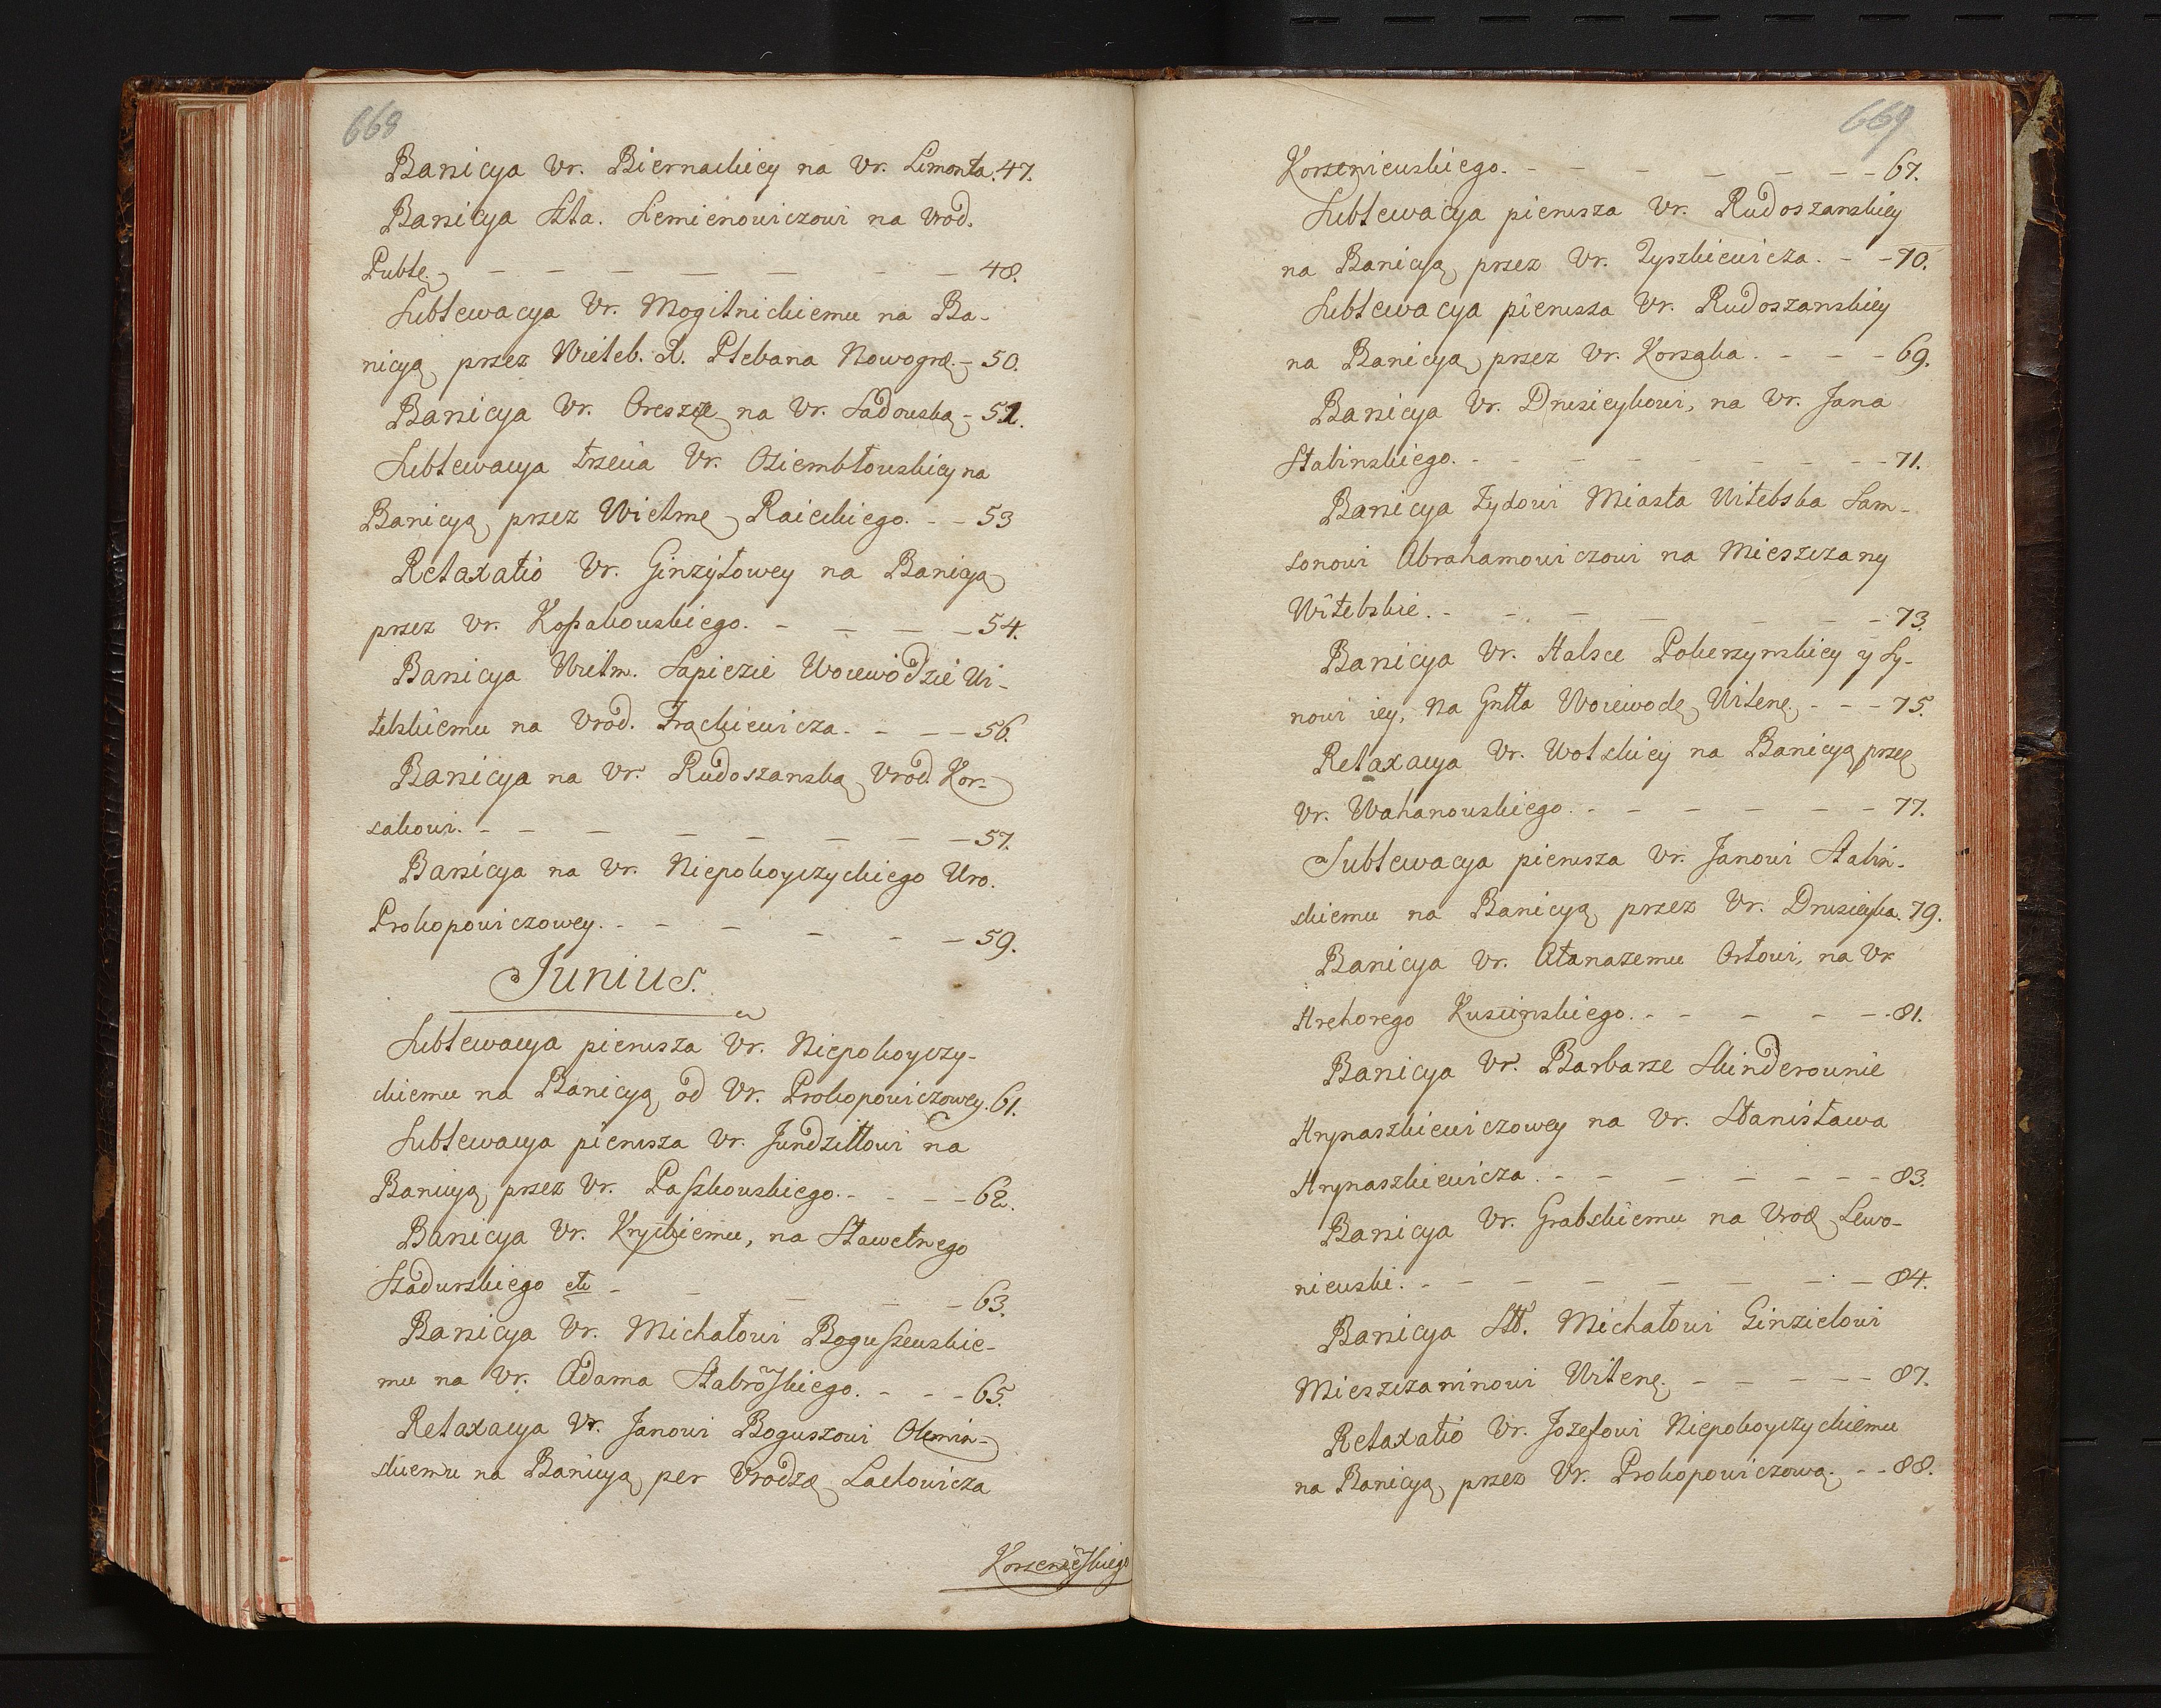 668
Banicya Ur. Biernackiey na Ur. Limonta. 47.
Banicya Szla. Siemienowiczowi na Urod.
Publę. – – – – – – – 48.
Sublewacya Ur. Mogilnickiemu na Ba-
nicyą przez Wieleb. X. Plebana Nowogrē. – 50.
Banicya Ur. Oreszce na Ur. Sadowską – 51.
Sublewacya trzecia Ur. Oziembłowskiey na
Banicyą przez Wielmę Raieckiego. – – 53
Relaxatio Ur. Ginzyłowey na Banicyą
przez Ur. Kossakowskiego. – – – – 54.
Banicya Wielm. Sapiezie Woiewodzie Wi-
tebskiemu na Urod. Frąckiewicza. – – – – 56.
Banicya na Ur. Rudoszanską Urod. Kor-
sakowi. – – – – – – – – 57.
Banicya na Ur. Niepokoyczyckiego Uro.
Prokopowiczowey. – – – – – – 59.
Junius.
Sublewacya pierwsza Ur. Niepokoyczy-
ckiemu na Banicyą od Ur. Prokopowiczowey. 61.
Sublewacya pierwsza Ur. Jundziłłowi na
Banicyą przez Ur. Paszkowskiego. – – – – 62.
Banicya Ur. Kryckiemu, na Sławetnego
Szadurskiego etc – – – – – 63.
Banicya Ur. Michałowi Boguszewskie-
mu na Ur. Adama Stabroskiego. – – – 65.
Relaxacya Ur. Janowi Boguszowi Olemin-
skiemu na Banicyą per Urodzę Lachowicza
Korzenieskiego
669
Korzeniewskiego. – – – – – – – – 67.
Sublewacya pierwsza Ur. Rudoszanskiey
na Banicyą przez Ur. Zyszkiewicza. – – 70.
Sublewacya pierwsza Ur. Rudoszanskiey
na Banicyą przez Ur. Korsaka. – – – 69.
Banicya Ur. Druzicykowi, na Ur. Jana
Stabinskiego. – – – – – – – – – 71.
Banicya Zydowi Miasta Witebska Sam-
sonowi Abrahamowiczowi na Mieszczany
Witebskie. – – – – – – – 73.
Banicya Ur. Halsce Pokerzynskiey y Sy-
nowi iey, na Gnlla Woiewodę Witenę. – – – 75.
Relaxacya Ur. Wolskiey na Banicyą przeę
Ur. Wahanowskiego. – – – – – – 77.
Sublewacya pierwsza Ur. Janowi Stabin-
skiemu na Banicyą przez Ur. Druzicyka. 79.
Banicya Ur. Atanazemu Orłowi, na Ur
Hrehorego Kuscinskiego. – – – – – 81.
Banicya Ur. Barbarze Skinderownie
Hrynaszkiewiczowey na Ur. Stanisława
Hrynaszkiewicza. – – – – – – – 83.
Banicya Ur. Grabskiemu na Urod Lewo-
niewski. – – – – – – – – 84.
Banicya Sł. Michałowi Ginzielowi
Mieszczaninowi Witenę. – – – – – 87.
Relaxatio Ur. Jozefowi Niepokoyczyckiemu
na Banicyą przez Ur. Prokopowiczową. – – 88.